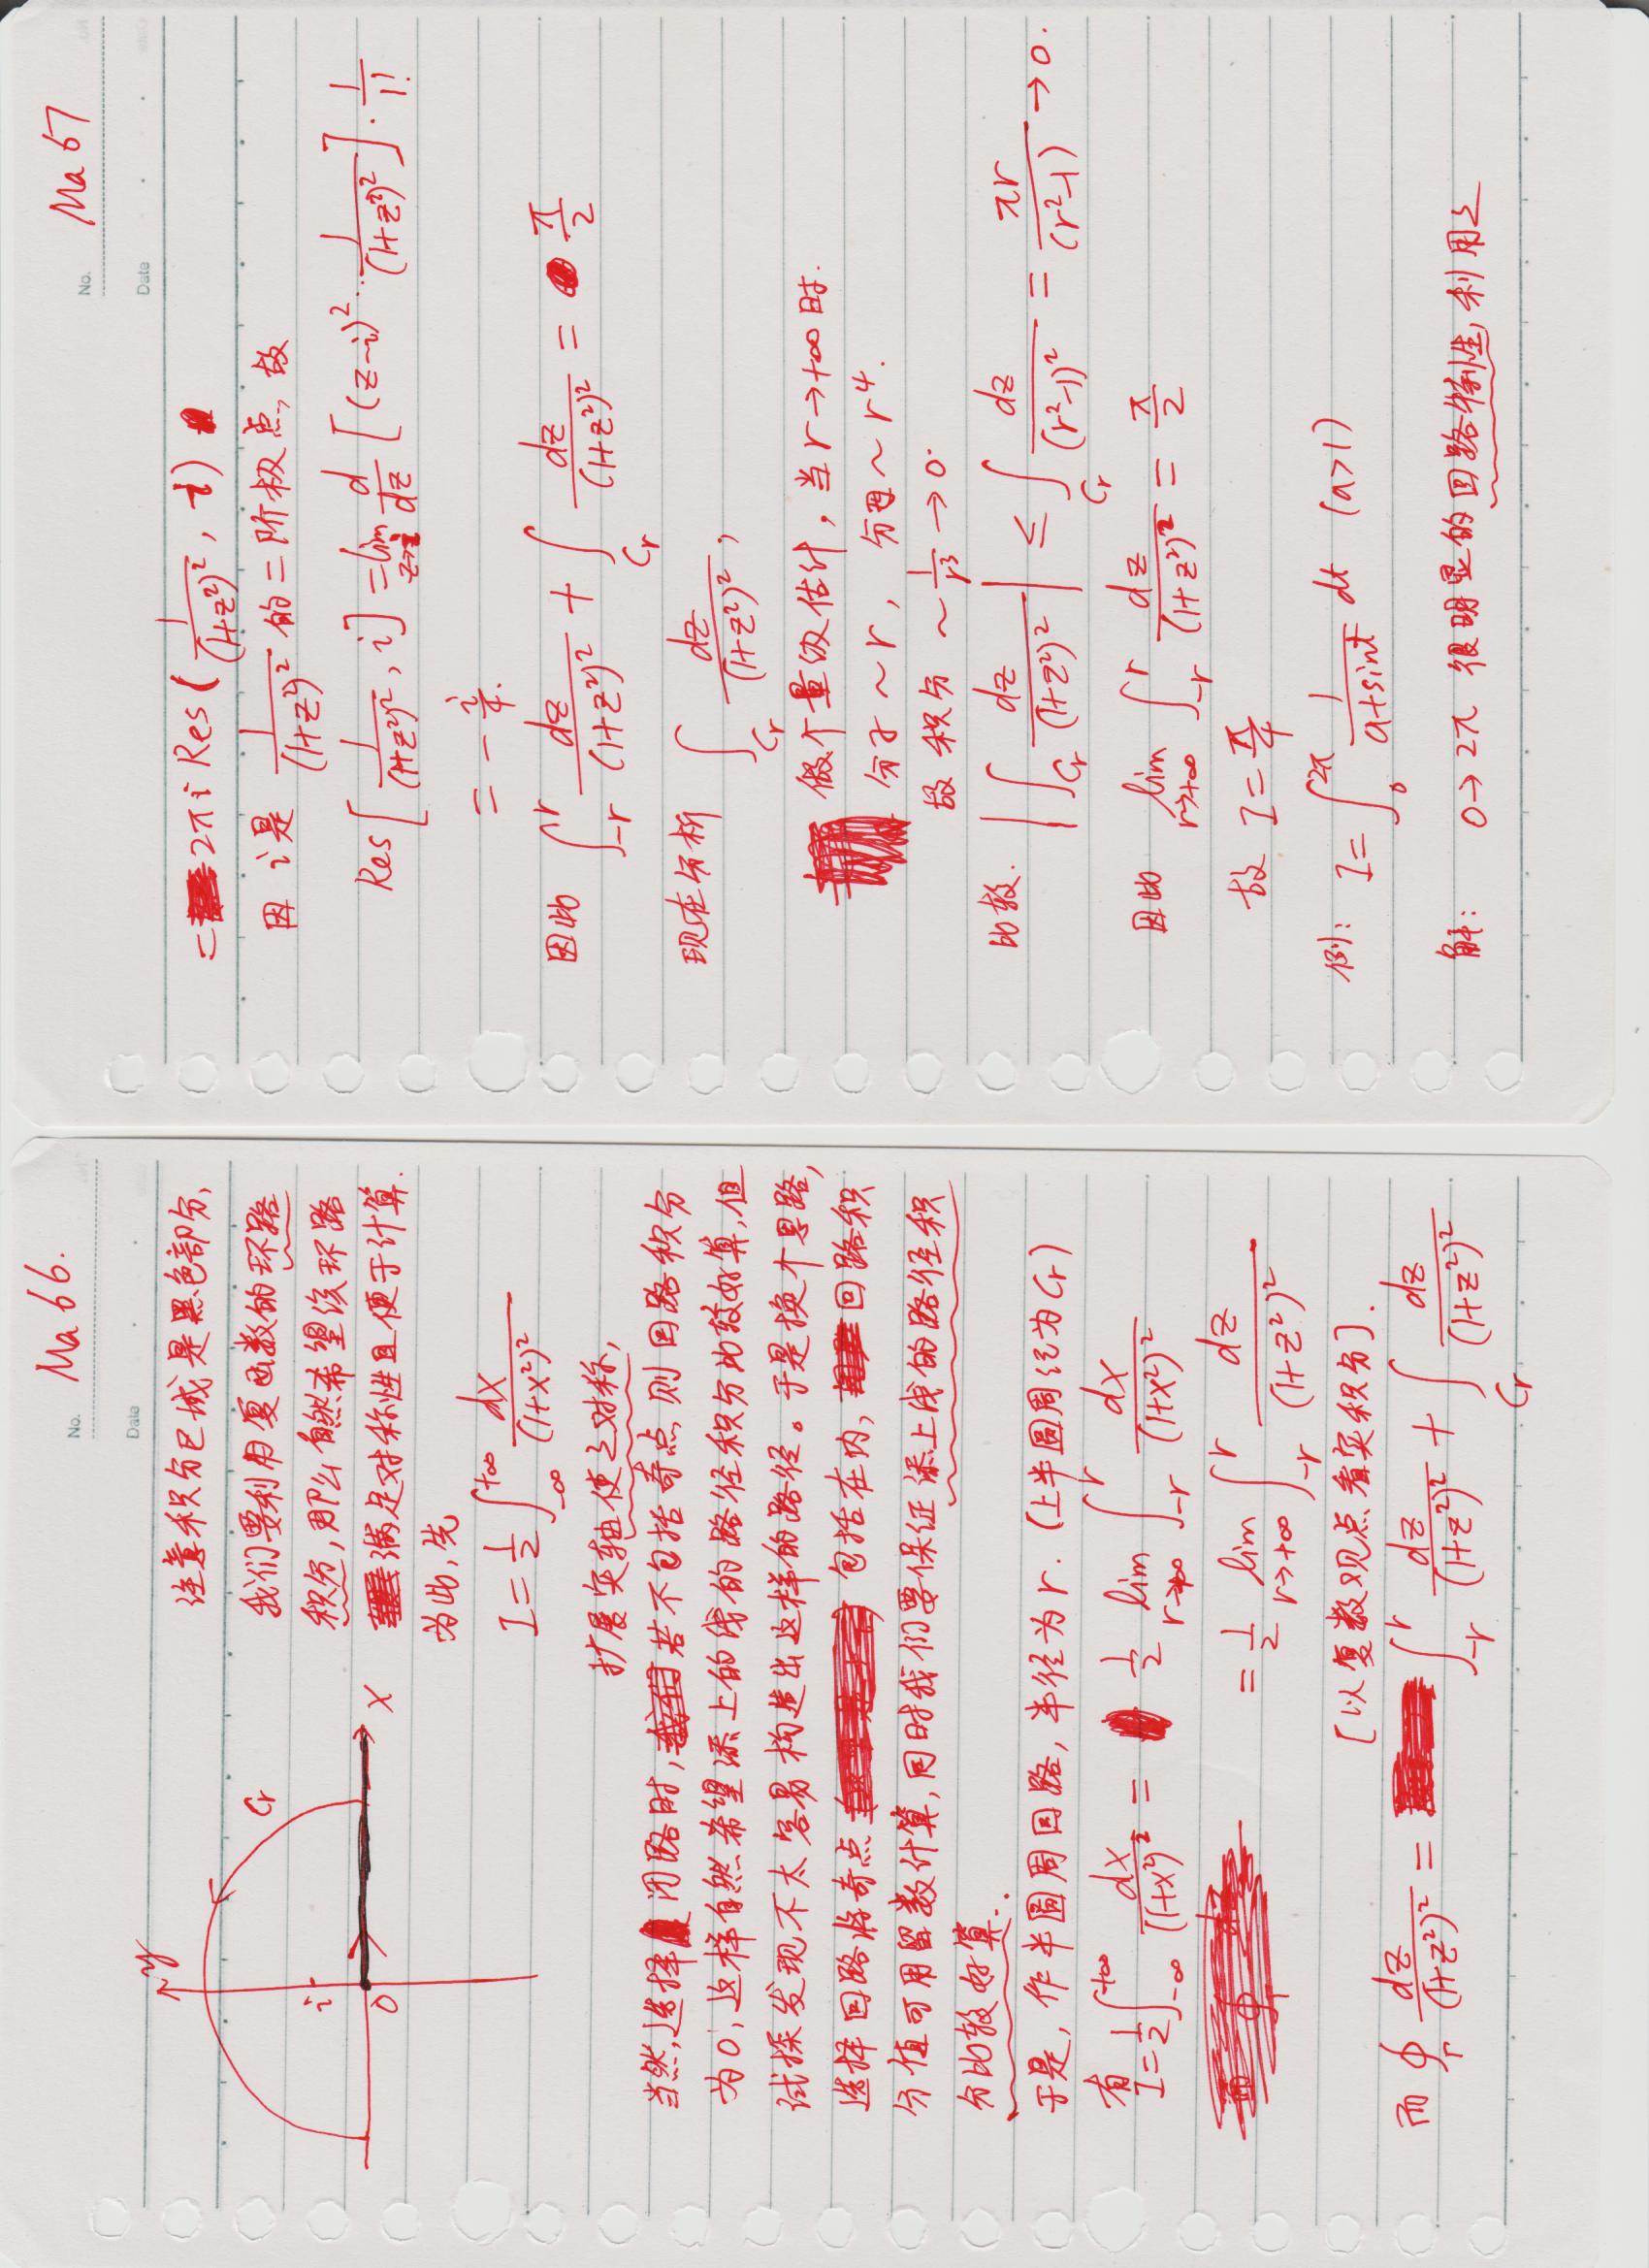 No. Ma 66.
Date
y
Cr
i
0
x
注意积分区域是黑色部分,
我们要利用复函数的环路
积分,那么自然希望该环路
满足对称性且便于计算.
为此,先
I = 1/2 ∫_{-∞}^{+∞} dx/(1+x²)²
扩展实轴使之对称,
当然,选择闭路时,若不包括奇点,则回路积分
为0,这样自然希望添上的线的路径积分比较好算,但
试探发现不太容易构造出这样的路径。于是换个思路,
选择回路将奇点包括在内,回路积
分值可用留数计算,同时我们要保证添上线的路径积
分比较好算.
于是,作半圆周回路,半径为r.(上半圆周记为Cr)
有
I = 1/2 ∫_{-∞}^{+∞} dx/(1+x²)² = 1/2 lim_{r→∞} ∫_{-r}^{r} dx/(1+x²)²
= 1/2 lim_{r→+∞} ∫_{-r}^{r} dz/(1+z²)²
[以复数观点看实积分].
而 ∮_Γ dz/(1+z²)² = ∫_{-r}^{r} dz/(1+z²)² + ∫_{Cr} dz/(1+z²)²
No. Ma 67
Date
= 2πi Res(1/(1+z²)², i)
因 i是 1/(1+z²)² 的二阶极点,故
Res[1/(1+z²)², i] = lim_{z→i} d/dz [(z-i)² · 1/(1+z²)²] · 1/1!
= - i/4.
因此 ∫_{-r}^{r} dz/(1+z²)² + ∫_{Cr} dz/(1+z²)² = π/2
现在分析 ∫_{Cr} dz/(1+z²)²,
做个量级估计,当r→+∞时.
分子~r, 分母~r⁴.
故 积分 ~ 1/r³ → 0.
比较. |∫_{Cr} dz/(1+z²)²| ≤ ∫_{Cr} dz/(r²-1)² = πr/(r²-1) → 0.
因此 lim_{r→+∞} ∫_{-r}^{r} dz/(1+z²)² = π/2
故 I = π/4
例: I = ∫_0^{2π} 1/(a+sint) dt (a>1)
解: 0→2π 很明显的回路特性,利用之